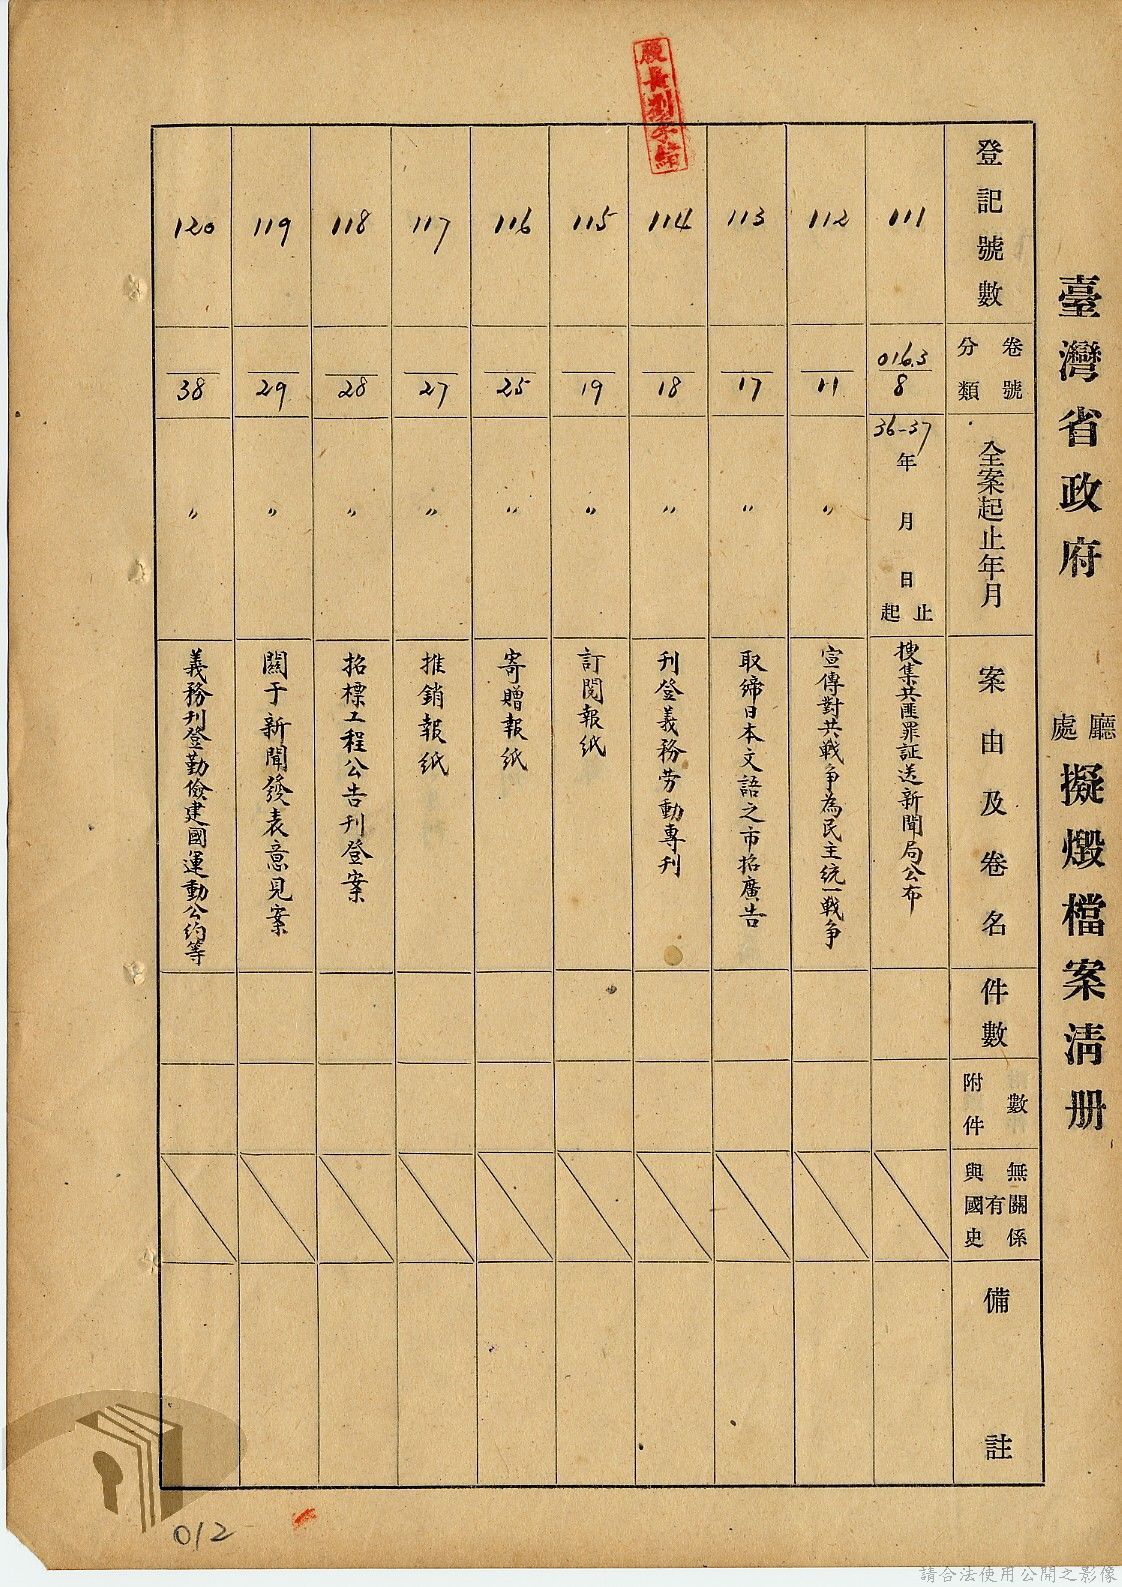 臺灣省政府 廳處 擬燬檔案清册
登記號數
卷號
分類
全案起止年月
案由及卷名
件數
附件
數
與國史
有
無關係
備註
111
016.3
8
36-37
年 月 日
起止
搜集共匪罪証送新聞局公布
112
11
〃
宣傳對共戰爭為民主統一戰爭
113
17
〃
取締日本文語之市招廣告
114
18
〃
刊登義務劳動專刊
115
19
〃
訂閱報紙
116
25
〃
寄贈報紙
117
27
〃
推銷報紙
118
28
〃
招標工程公告刊登案
119
29
〃
關于新聞發表意見案
120
38
〃
義務刊登勤儉建國運動公約等
012
請合法使用公開之影像